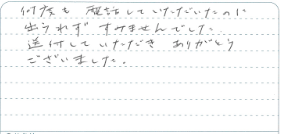 何度も 電話していただいたのに
出られず すみませんでした。
送付していただき ありがとう
ございました。